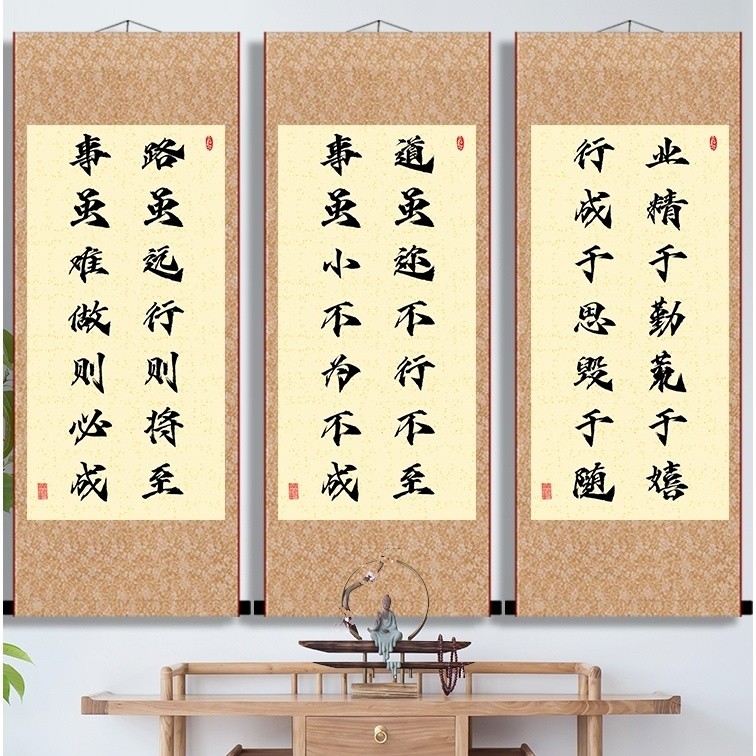 路虽远行则将至
事虽难做则必成
道虽迩不行不至
事虽小不为不成
业精于勤荒于嬉
行成于思毁于随